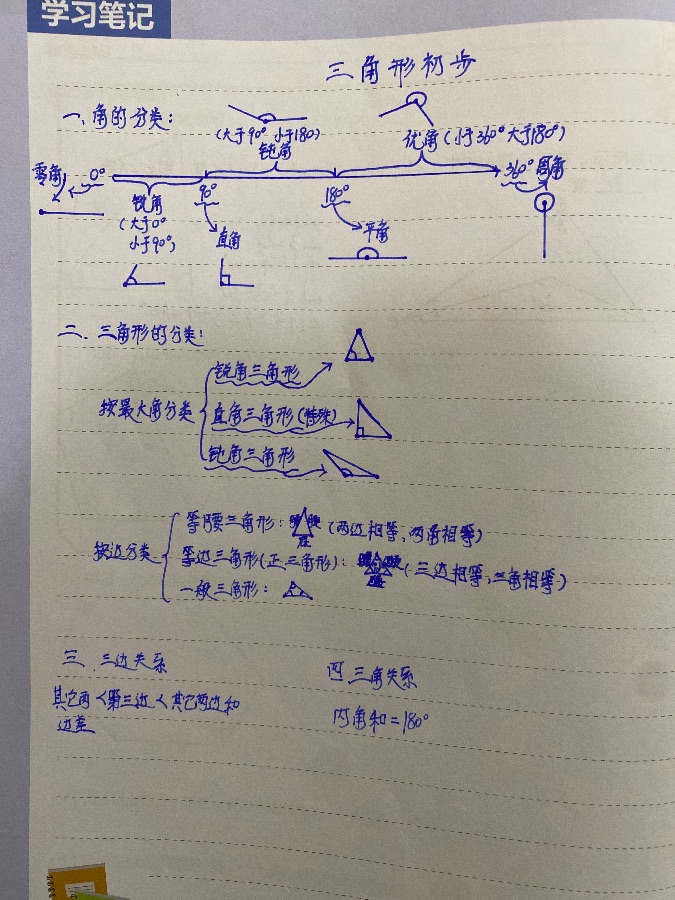 学习笔记
三角形初步
一、角的分类：
(大于90° 小于180)
钝角
优角(小于360°大于180°)
零角 0° 90° 180° 360° 周角
锐角
(大于0°
小于90°)
直角
平角
二、三角形的分类：
按最大角分类
锐角三角形
直角三角形(特殊)
钝角三角形
按边分类
等腰三角形： 腰 腰 底 (两边相等，两角相等)
等边三角形(正三角形)： (三边相等，三角相等)
一般三角形：
三 三边关系
其它两<第三边<其它两边和
边差
四 三角关系
内角和=180°